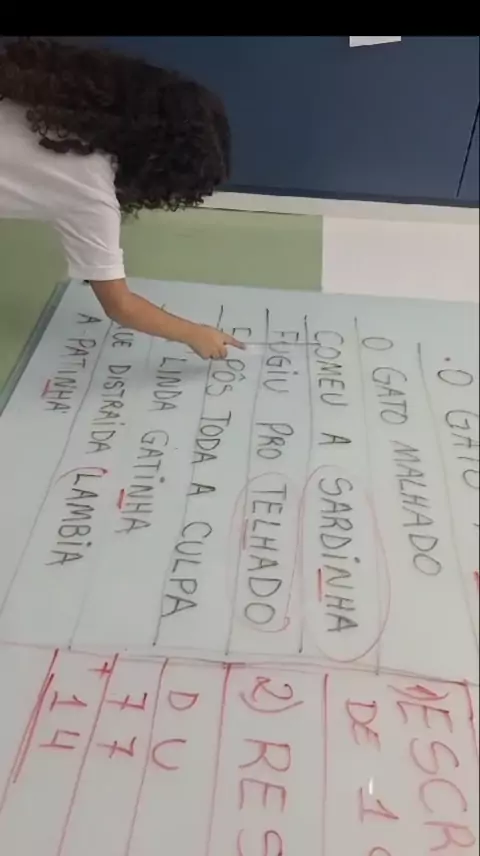 .O GATO
O GATO MALHADO
COMEU A SARDINHA
FUGIU PRO TELHADO
E PÔS TODA A CULPA
LINDA GATINHA
QUE DISTRAIDA LAMBIA
A PATINHA
1) ESCR
DE 1
2) RES
D U
7 7
+ 7
14